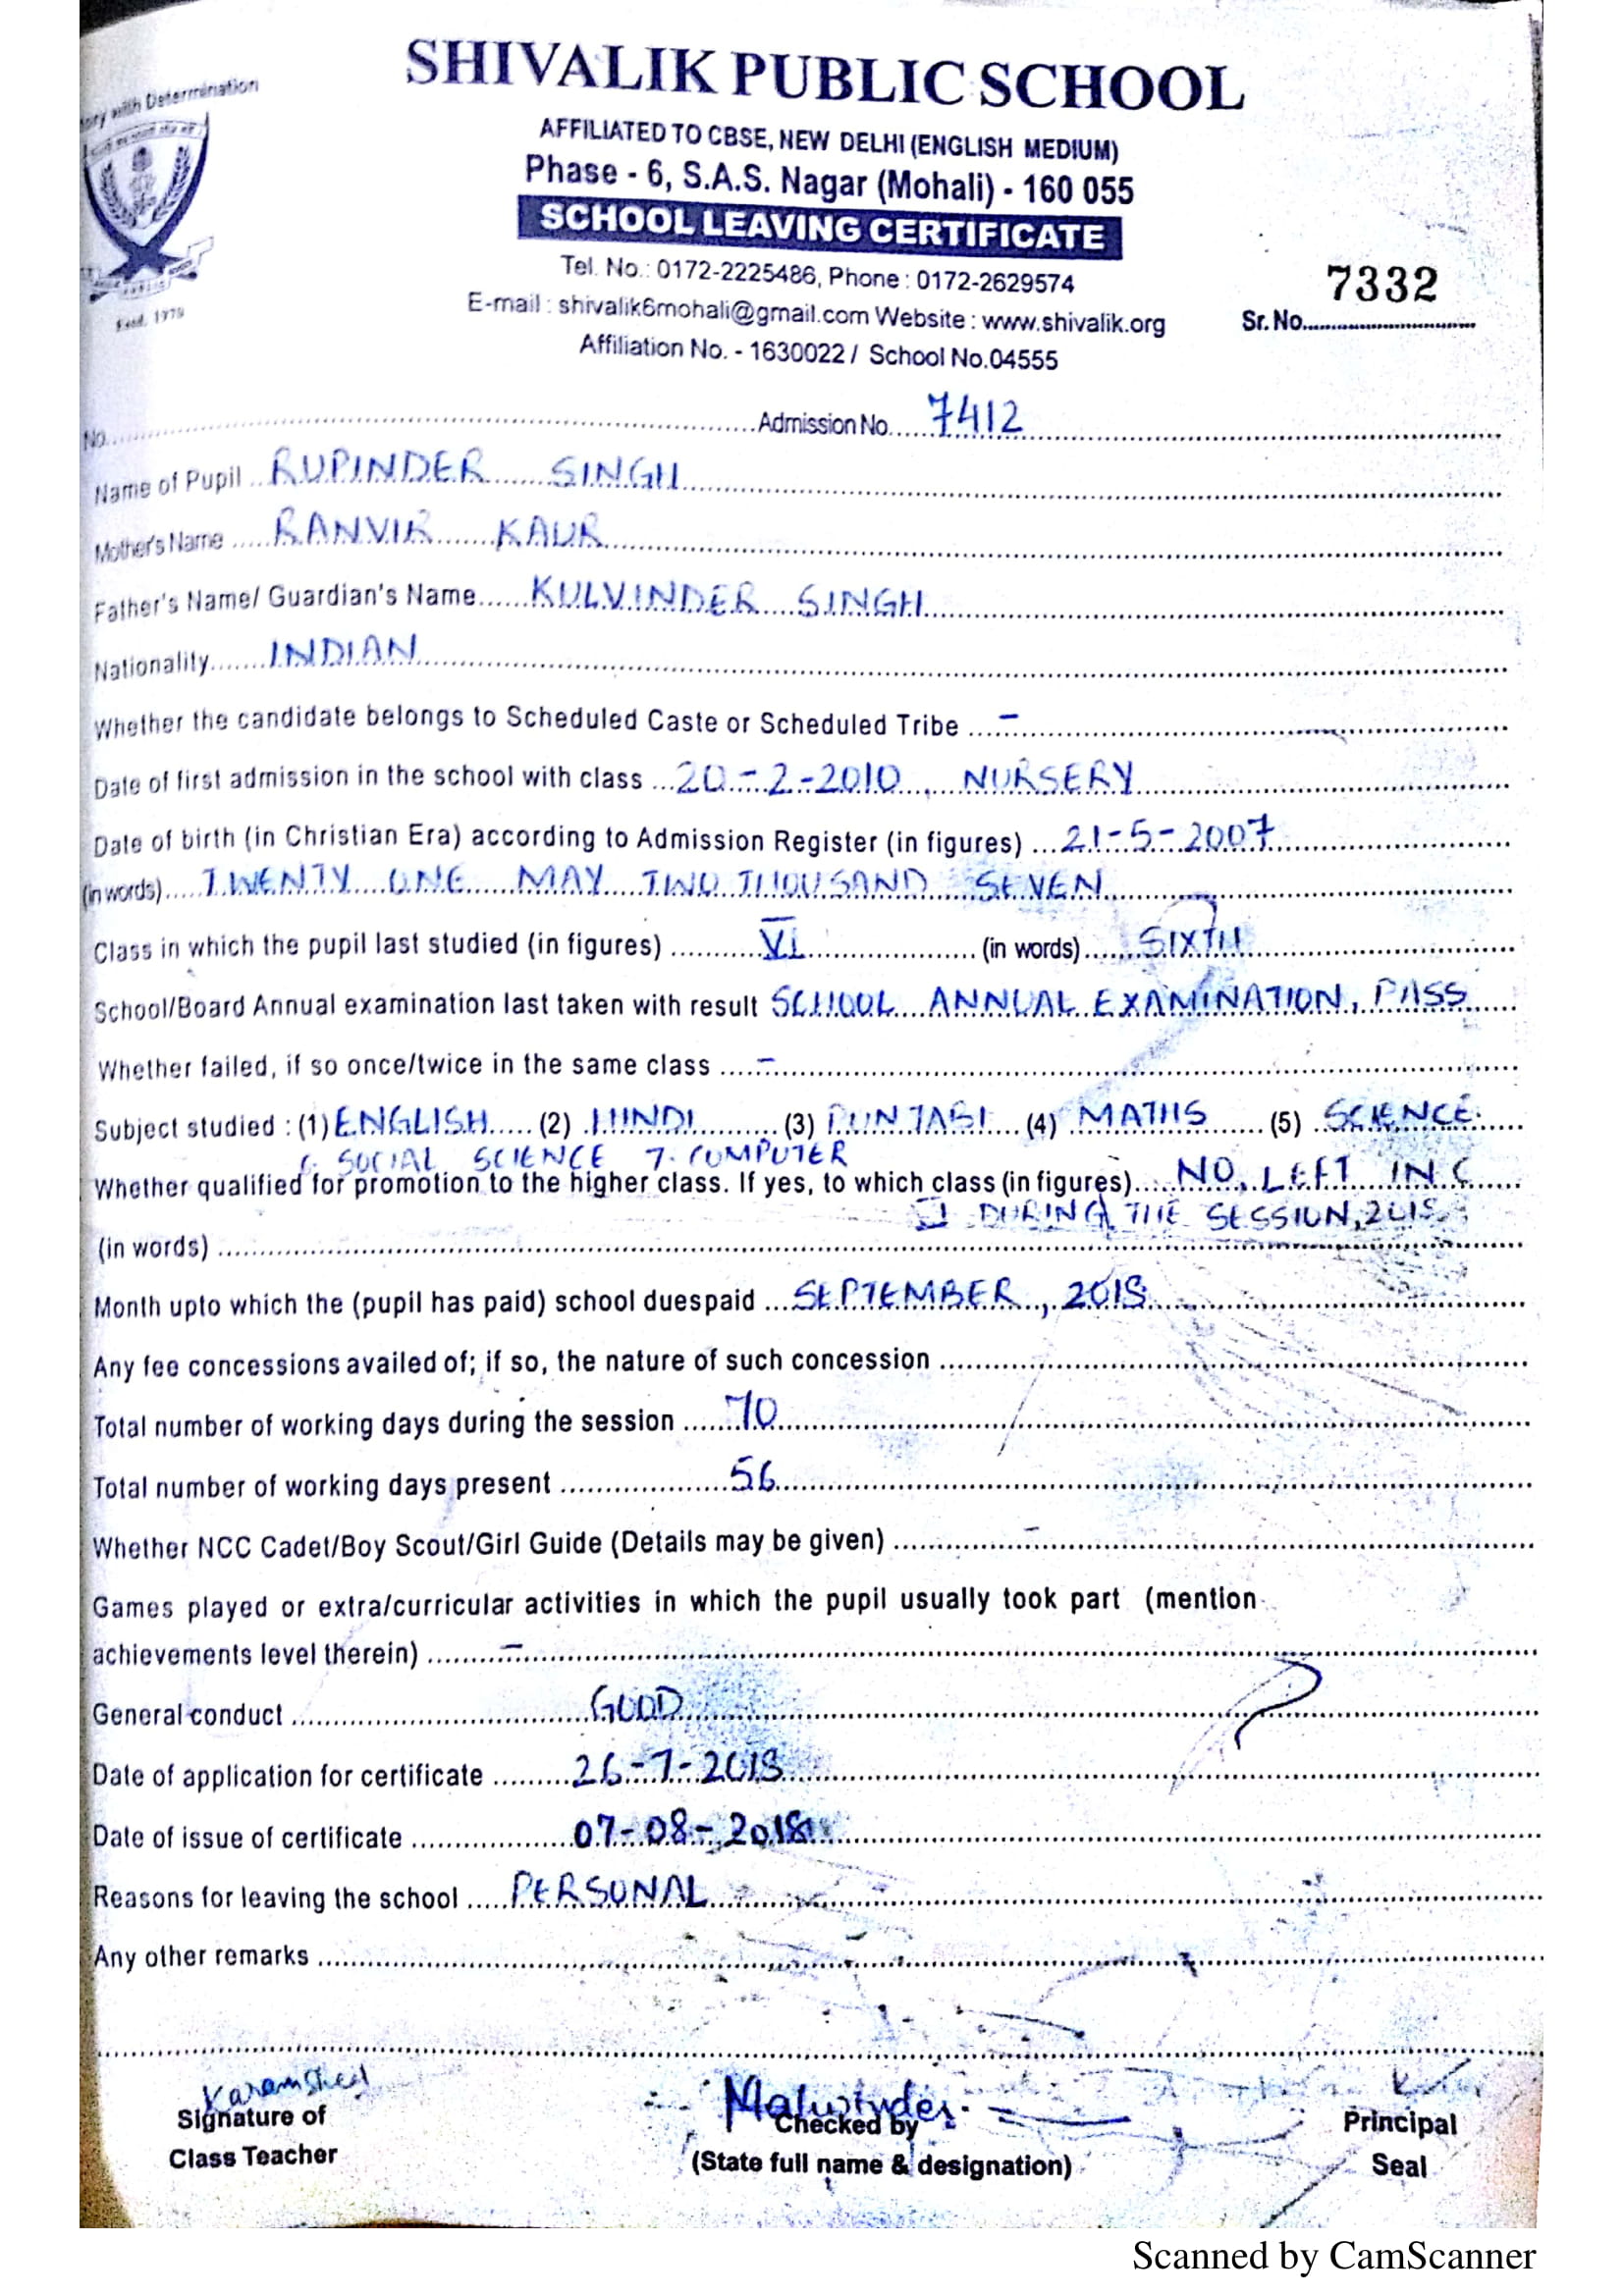 ory with Determination
SHIVALIK PUBLIC SCHOOL
AFFILIATED TO CBSE, NEW DELHI (ENGLISH MEDIUM)
Phase - 6, S.A.S. Nagar (Mohali) - 160 055
SCHOOL LEAVING CERTIFICATE
Tel. No.: 0172-2225486, Phone : 0172-2629574
E-mail : shivalik6mohali@gmail.com Website : www.shivalik.org
Affiliation No. - 1630022 / School No.04555
Estd. 1979
7332
Sr. No.
No. Admission No. 7412
Name of Pupil RUPINDER SINGH
Mother's Name RANVIR KAUR
Father's Name/ Guardian's Name KULVINDER SINGH
Nationality INDIAN
Whether the candidate belongs to Scheduled Caste or Scheduled Tribe –
Date of first admission in the school with class 20-2-2010, NURSERY
Date of birth (in Christian Era) according to Admission Register (in figures) 21-5-2007
(in words) TWENTY ONE MAY TWO THOUSAND SEVEN
Class in which the pupil last studied (in figures) VI (in words) SIXTH
School/Board Annual examination last taken with result SCHOOL ANNUAL EXAMINATION, PASS
Whether failed, if so once/twice in the same class –
Subject studied : (1) ENGLISH (2) HINDI (3) PUNJABI (4) MATHS (5) SCIENCE
6. SOCIAL SCIENCE 7. COMPUTER
Whether qualified for promotion to the higher class. If yes, to which class (in figures) NO, LEFT IN
DURING THE SESSION, 2018
(in words)
Month upto which the (pupil has paid) school duespaid SEPTEMBER, 2018
Any fee concessions availed of; if so, the nature of such concession
Total number of working days during the session 70
Total number of working days present 56
Whether NCC Cadet/Boy Scout/Girl Guide (Details may be given) –
Games played or extra/curricular activities in which the pupil usually took part (mention
achievements level therein) –
General conduct GOOD
Date of application for certificate 26-7-2018
Date of issue of certificate 07-08-2018
Reasons for leaving the school PERSONAL
Any other remarks
Malwinder
Signature of Checked by Principal
Class Teacher (State full name & designation) Seal
Scanned by CamScanner